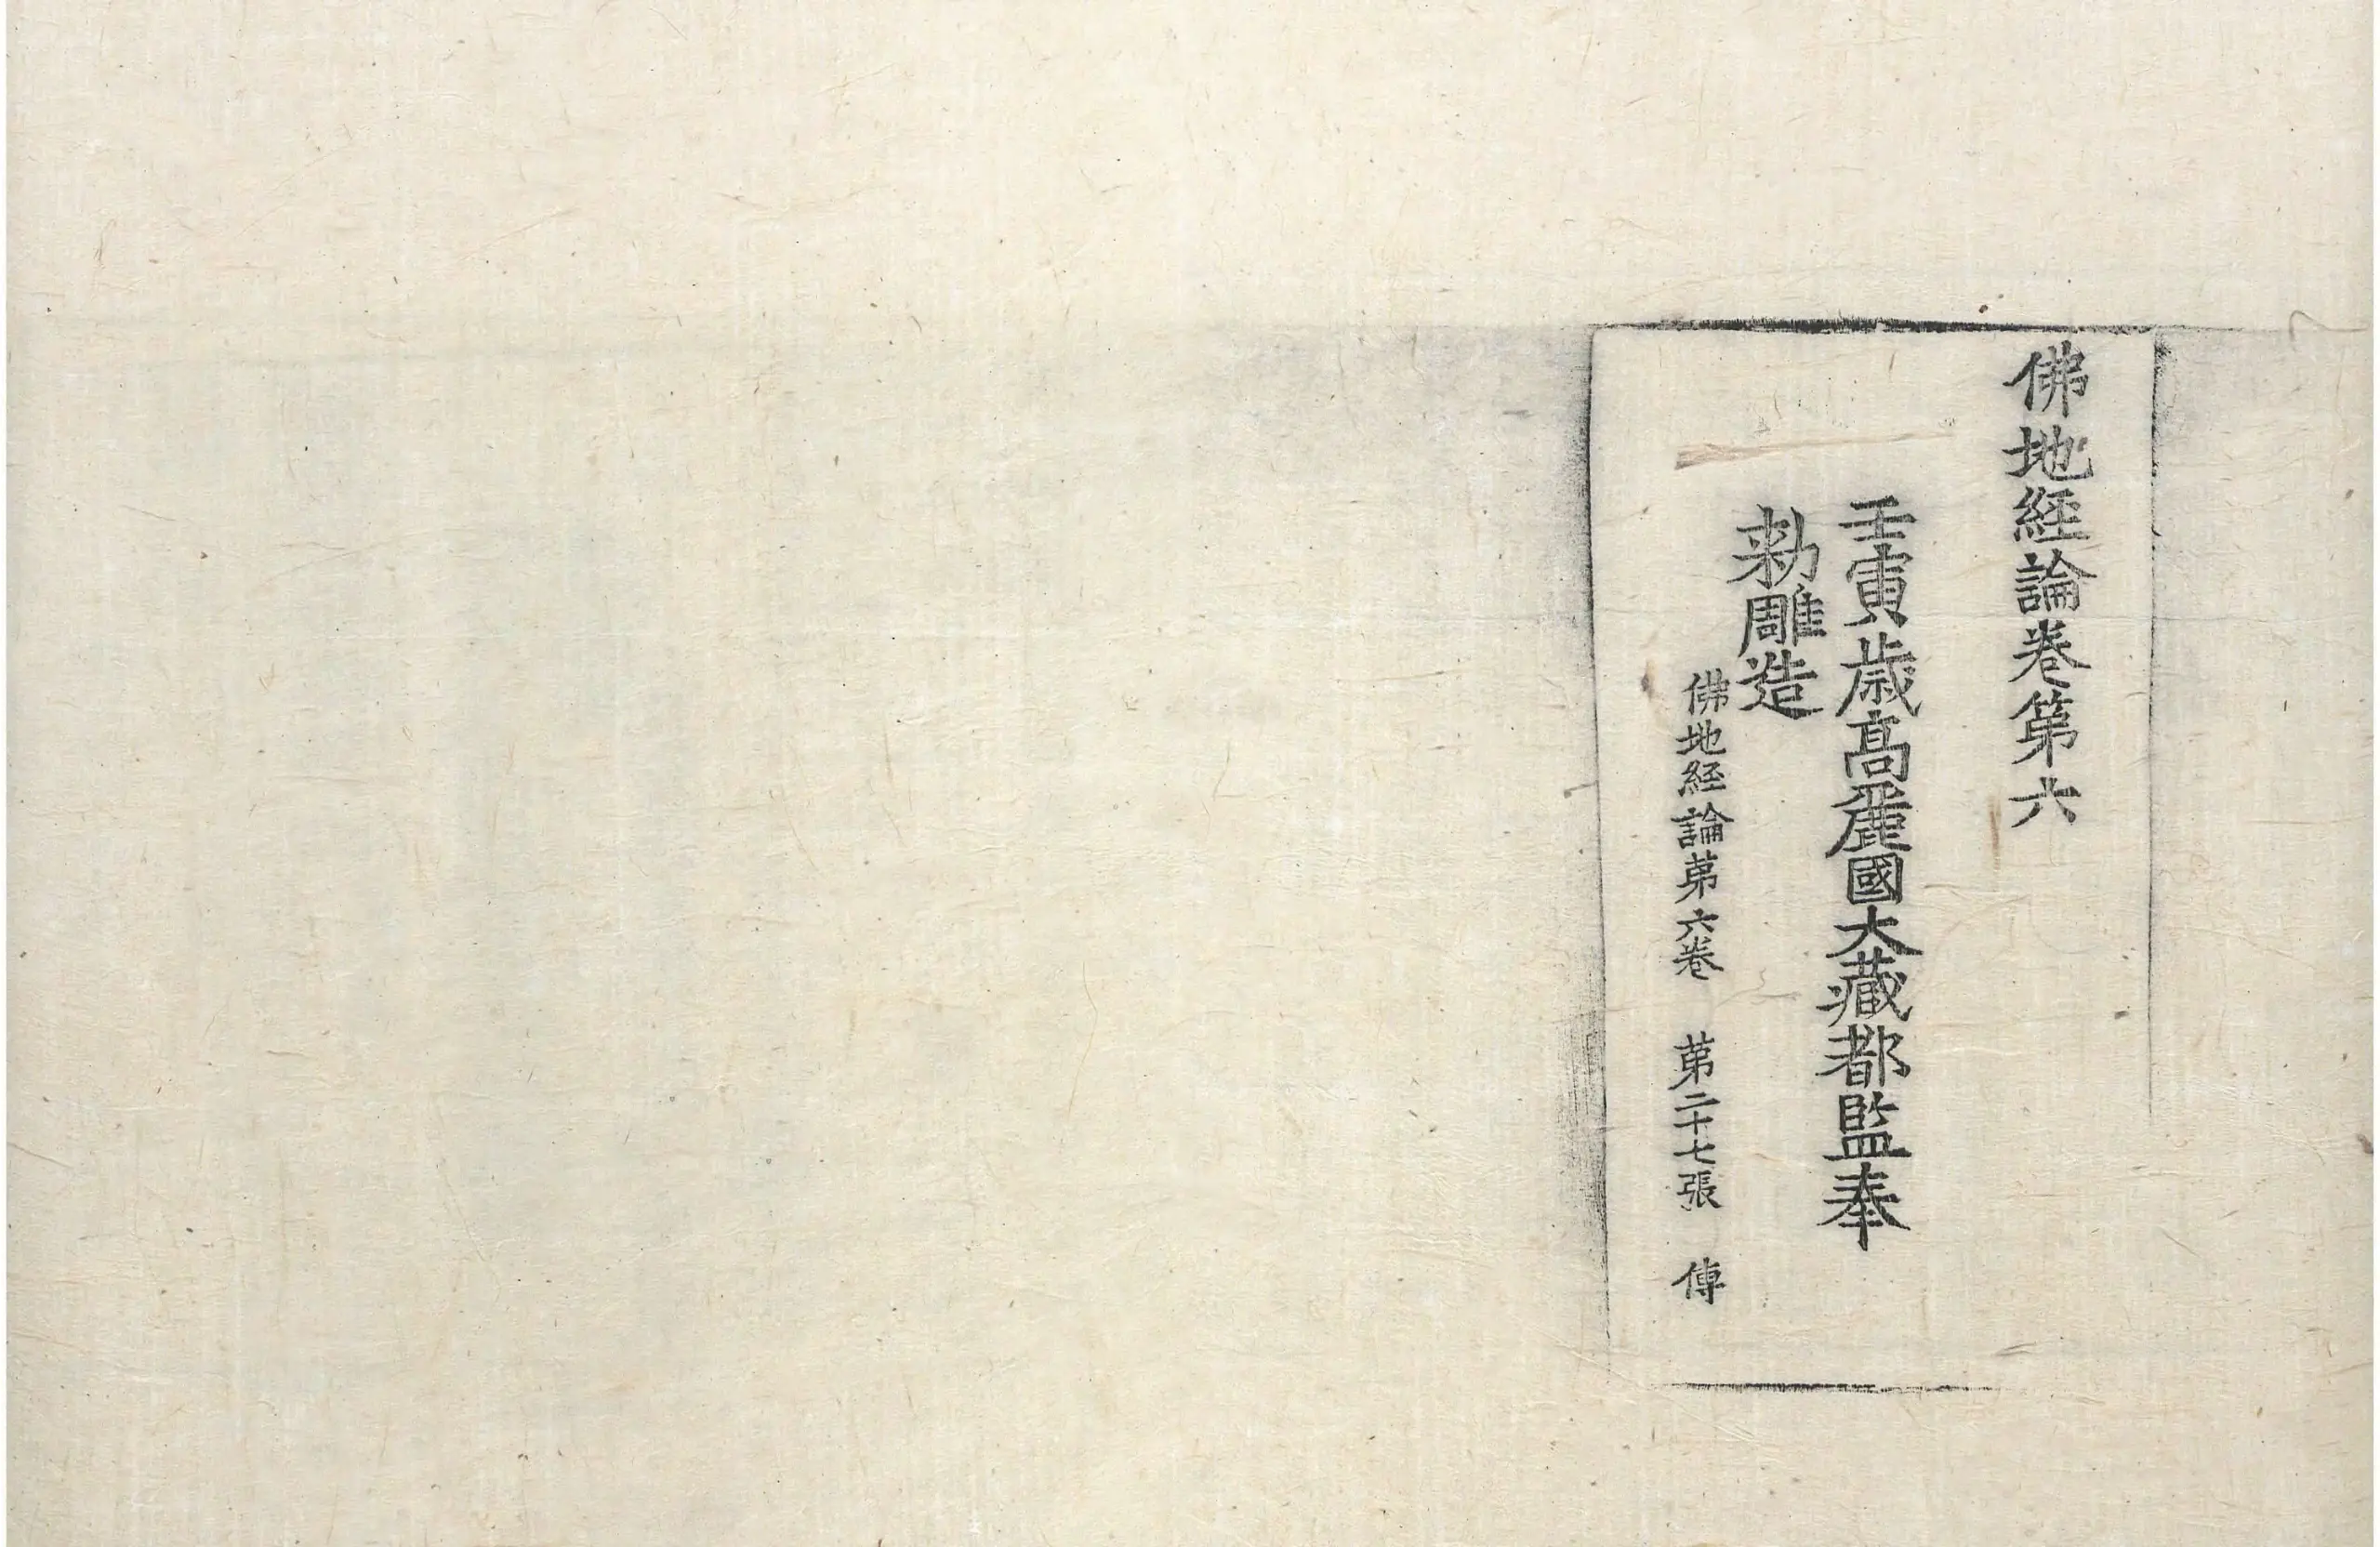 佛地経論卷第六
壬寅歳高麗國大藏都監奉
勑雕造
佛地経論第六卷 第二十七張 傳